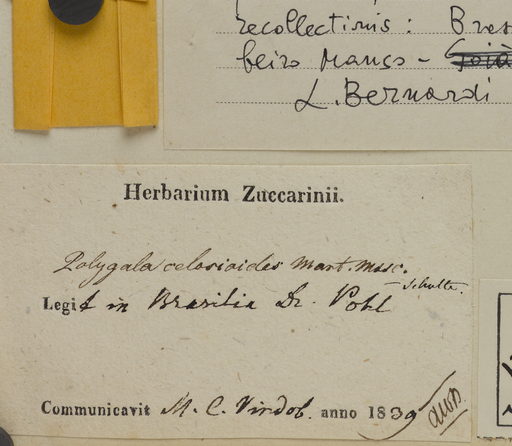 recollectiris: Bras
beiro Manso - Goiá
L. Bernardi
Herbarium Zuccarinii.
Polygala celosioides Mart. Masc.
- Schultr.
Legit in Brasilia Dr. Pohl
Communicavit M. C. Vindob. anno 1839